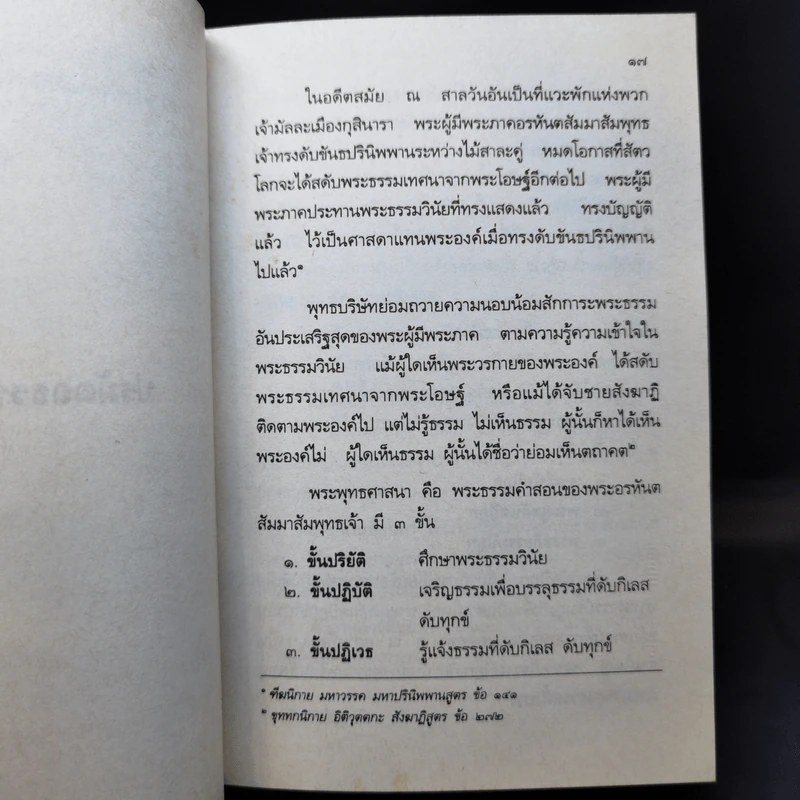 ๑๗
ในอดีตสมัย ณ สาลวันอันเป็นที่แวะพักแห่งพวก
เจ้ามัลละเมืองกุสินารา พระผู้มีพระภาคอรหันตสัมมาสัมพุทธ
เจ้าทรงดับขันธปรินิพพานระหว่างไม้สาละคู่ หมดโอกาสที่สัตว
โลกจะได้สดับพระธรรมเทศนาจากพระโอษฐ์อีกต่อไป พระผู้มี
พระภาคประทานพระธรรมวินัยที่ทรงแสดงแล้ว ทรงบัญญัติ
แล้ว ไว้เป็นศาสดาแทนพระองค์เมื่อทรงดับขันธปรินิพพาน
ไปแล้ว๑
พุทธบริษัทย่อมถวายความนอบน้อมสักการะพระธรรม
อันประเสริฐสุดของพระผู้มีพระภาค ตามความรู้ความเข้าใจใน
พระธรรมวินัย แม้ผู้ใดเห็นพระวรกายของพระองค์ ได้สดับ
พระธรรมเทศนาจากพระโอษฐ์ หรือแม้ได้จับชายสังฆาฏิ
ติดตามพระองค์ไป แต่ไม่รู้ธรรม ไม่เห็นธรรม ผู้นั้นก็หาได้เห็น
พระองค์ไม่ ผู้ใดเห็นธรรม ผู้นั้นได้ชื่อว่าย่อมเห็นตถาคต๒
พระพุทธศาสนา คือ พระธรรมคำสอนของพระอรหันต
สัมมาสัมพุทธเจ้า มี ๓ ขั้น
๑. ขั้นปริยัติ ศึกษาพระธรรมวินัย
๒. ขั้นปฏิบัติ เจริญธรรมเพื่อบรรลุธรรมที่ดับกิเลส
ดับทุกข์
๓. ขั้นปฏิเวธ รู้แจ้งธรรมที่ดับกิเลส ดับทุกข์
๑ ทีฆนิกาย มหาวรรค มหาปรินิพพานสูตร ข้อ ๑๔๑
๒ ขุททกนิกาย อิติวุตตกะ สังฆาฏิสูตร ข้อ ๒๗๒